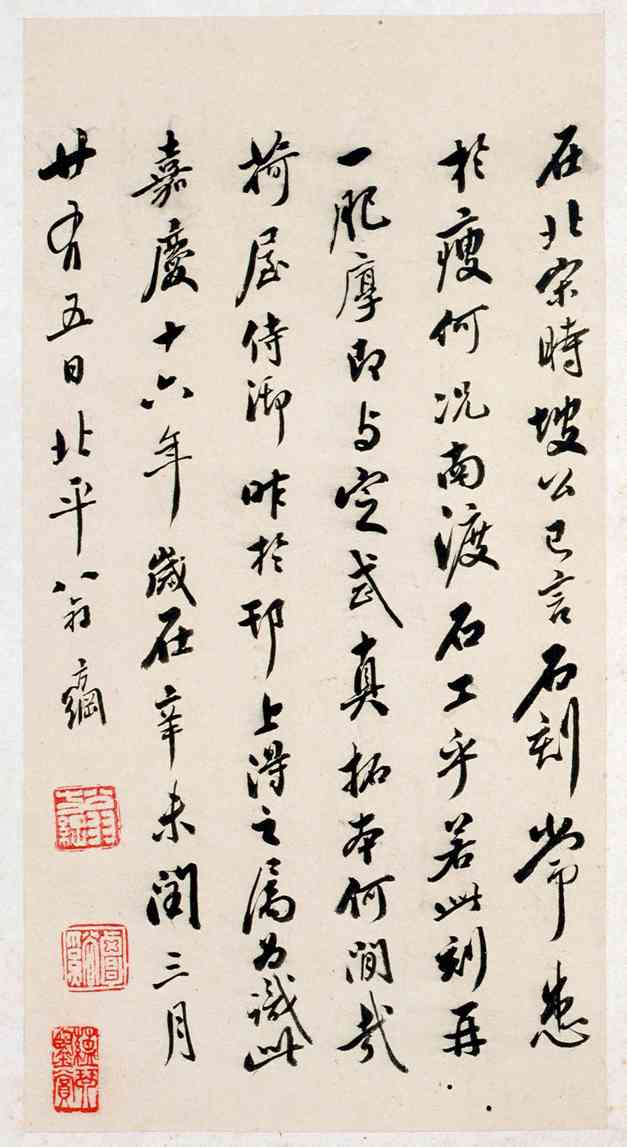 在北宋時坡公已言石刻常患
於瘦何况南渡石工乎若此刻再
一肥摩即与定武真拓本何間哉
荷屋侍御昨於邗上得之属为識此
嘉慶十六年歲在辛未閏三月
廿有五日北平翁方綱